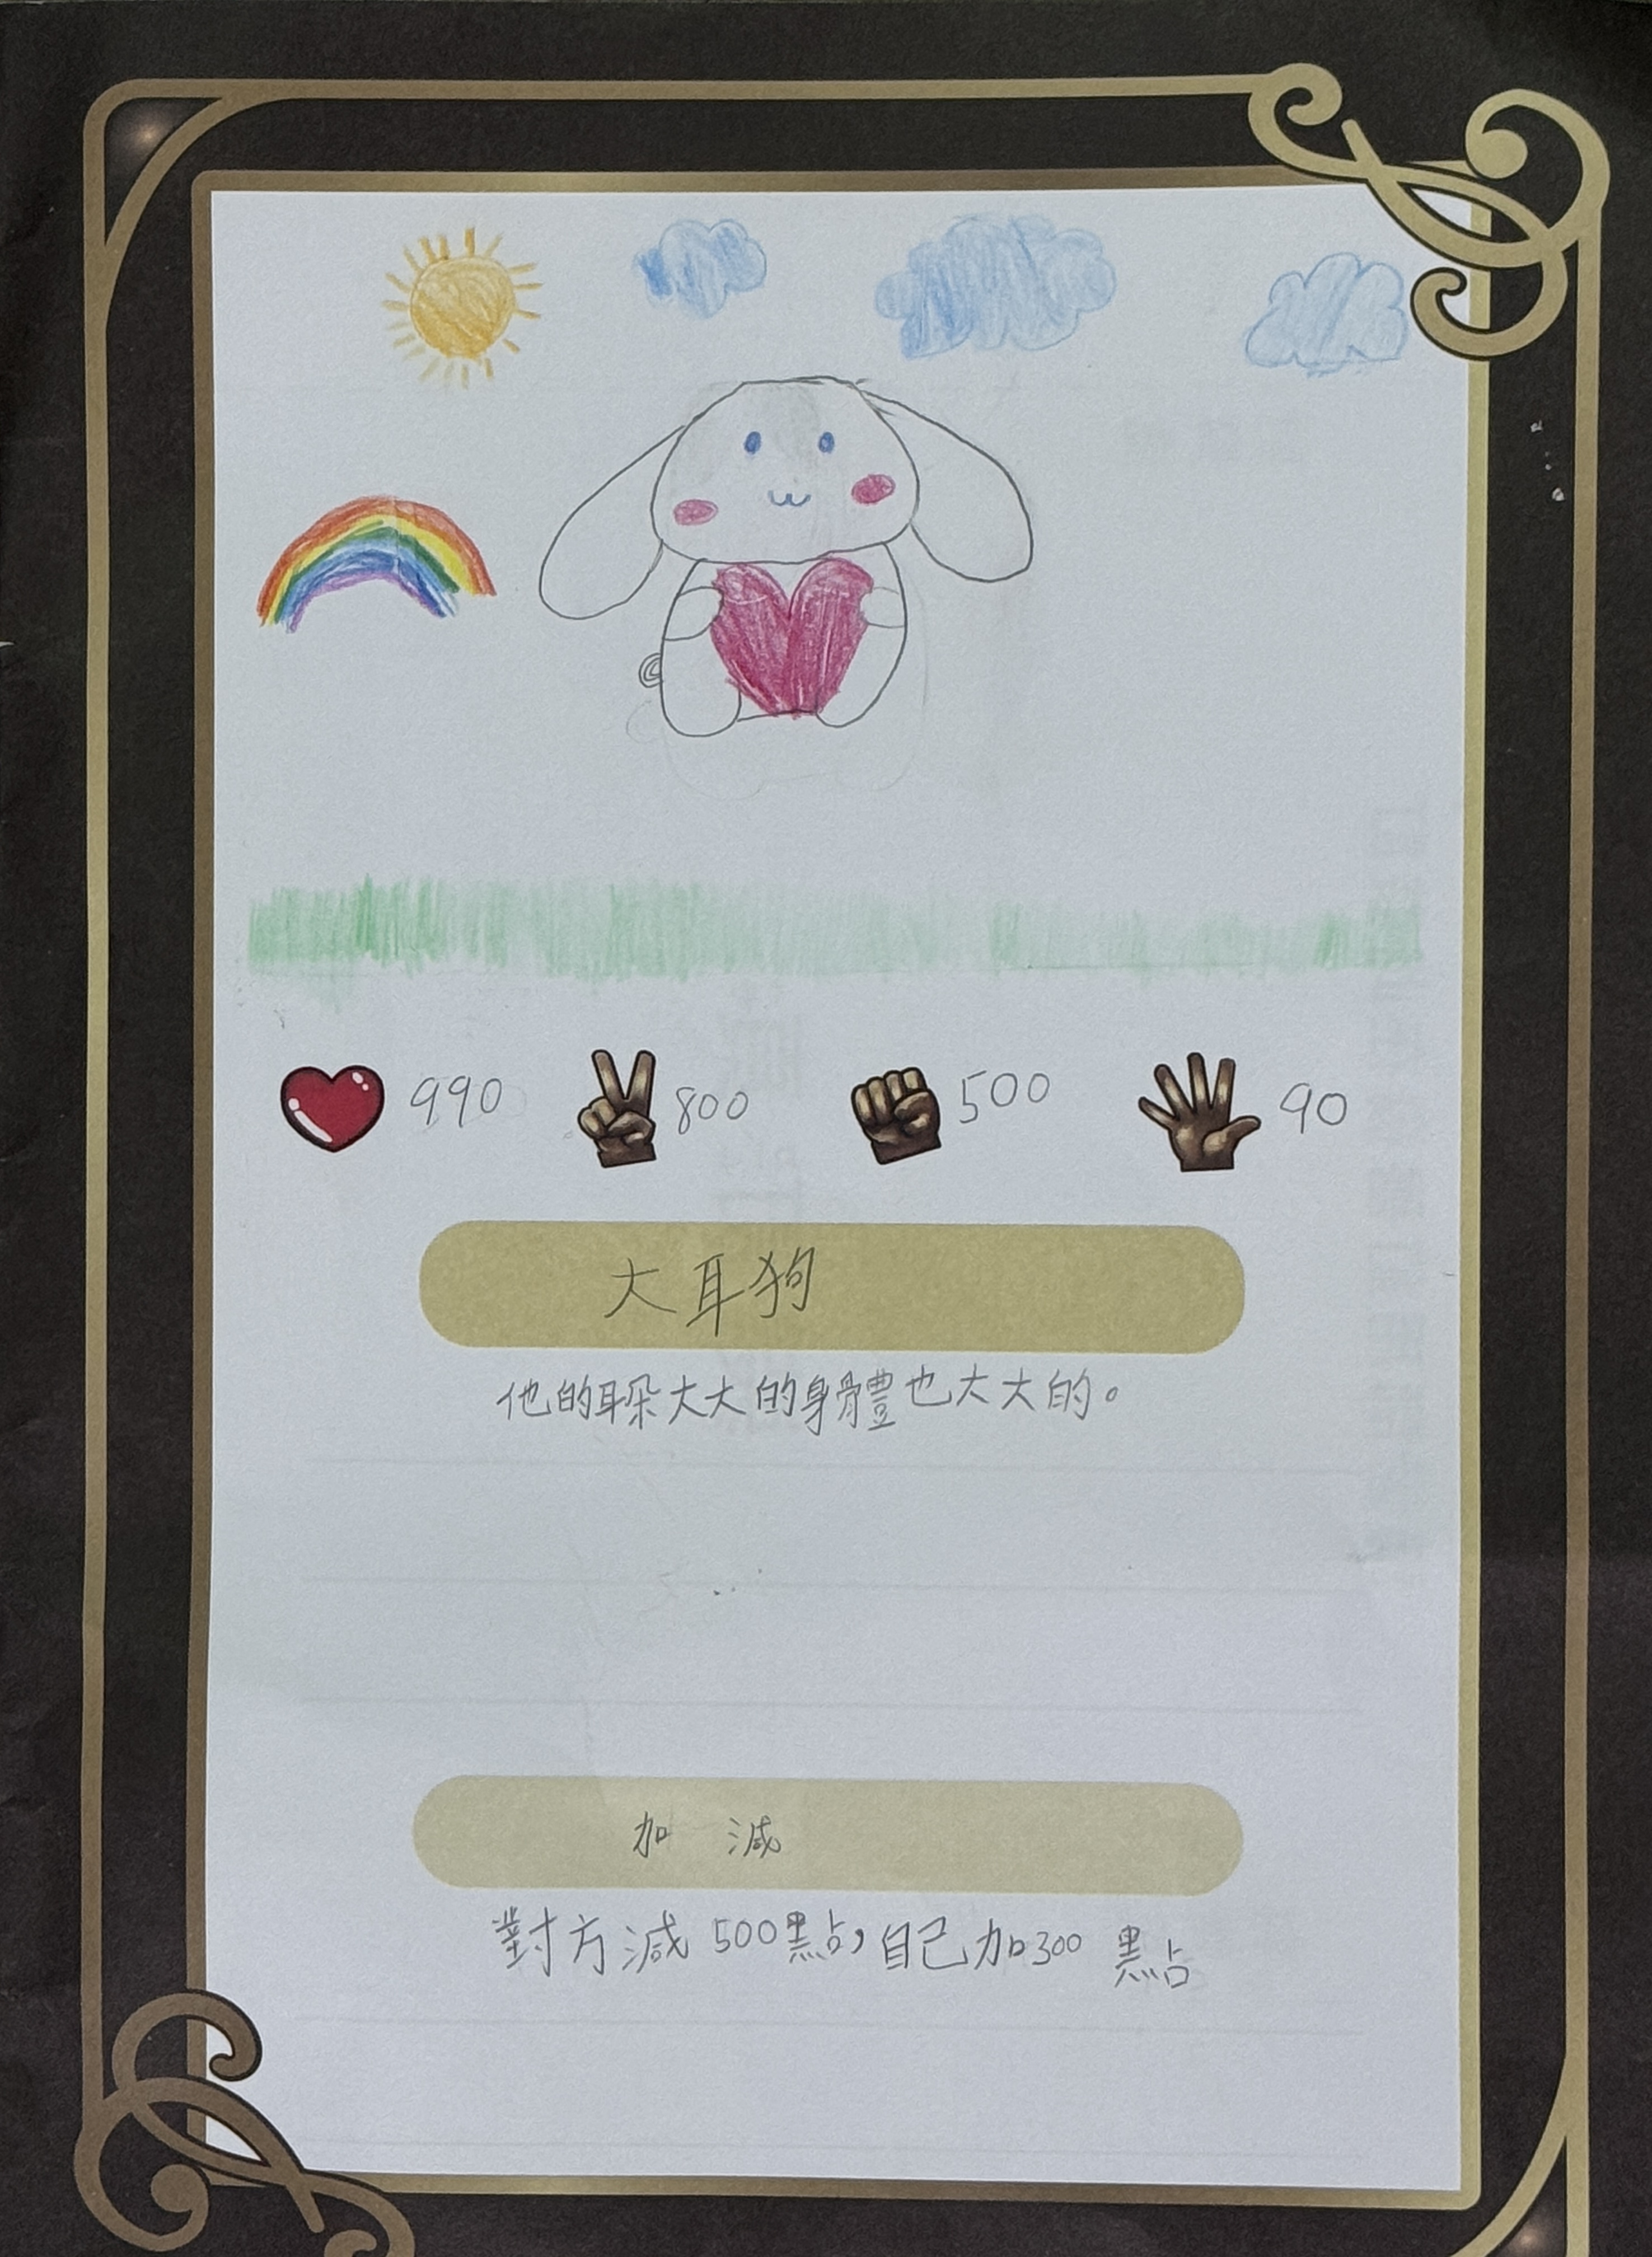 990 800 500 90
大耳狗
他的耳朵大大的身體也大大的。
加 減
對方減500點，自己加300點